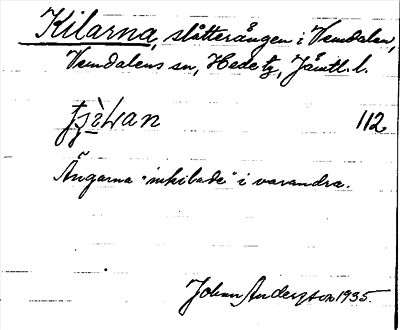 Kilarna, slåtterängen i Vemdalen,
Vemdalens sn, Hede tg, Jämtl. l.
112
Ängarna "inkilade" i varandra.
Johan Anderzson 1935.